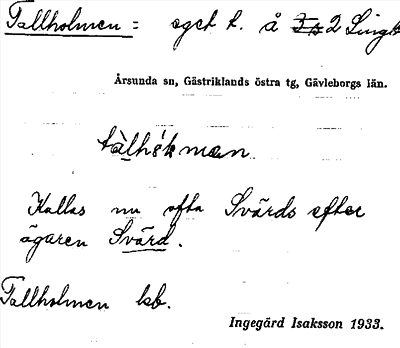 Tallholmen = eget l. å 2 Lingb
Årsunda sn, Gästriklands östra tg, Gävleborgs län.
Kallas nu ofta Svärds efter
ägaren Svärd.
Tallholmen lsb.
Ingegärd Isaksson 1933.